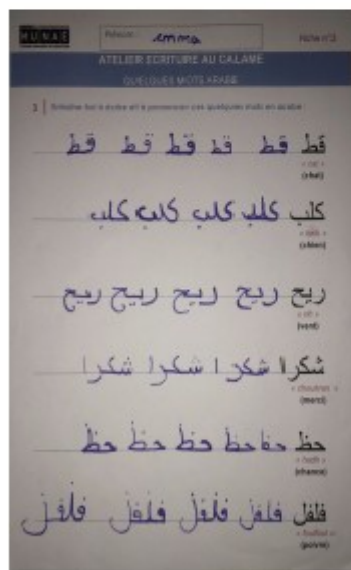 HUNAE
Prénom : emma
Fiche n°3
ATELIER ECRITURE AU CALAME
QUELQUES MOTS ARABE
3 ces quelques mots en arabe :
قط قط قط قط قط قط
(chat)
كلب كلب كلب كلب كلب
(chien)
ريح ريح ريح ريح ريح
(vent)
شكرا شكرا شكرا شكرا
« choukran »
(merci)
حظ حظ حظ حظ حظ
(chance)
فلفل فلفل فلفل فلفل فلفل
(poivre)